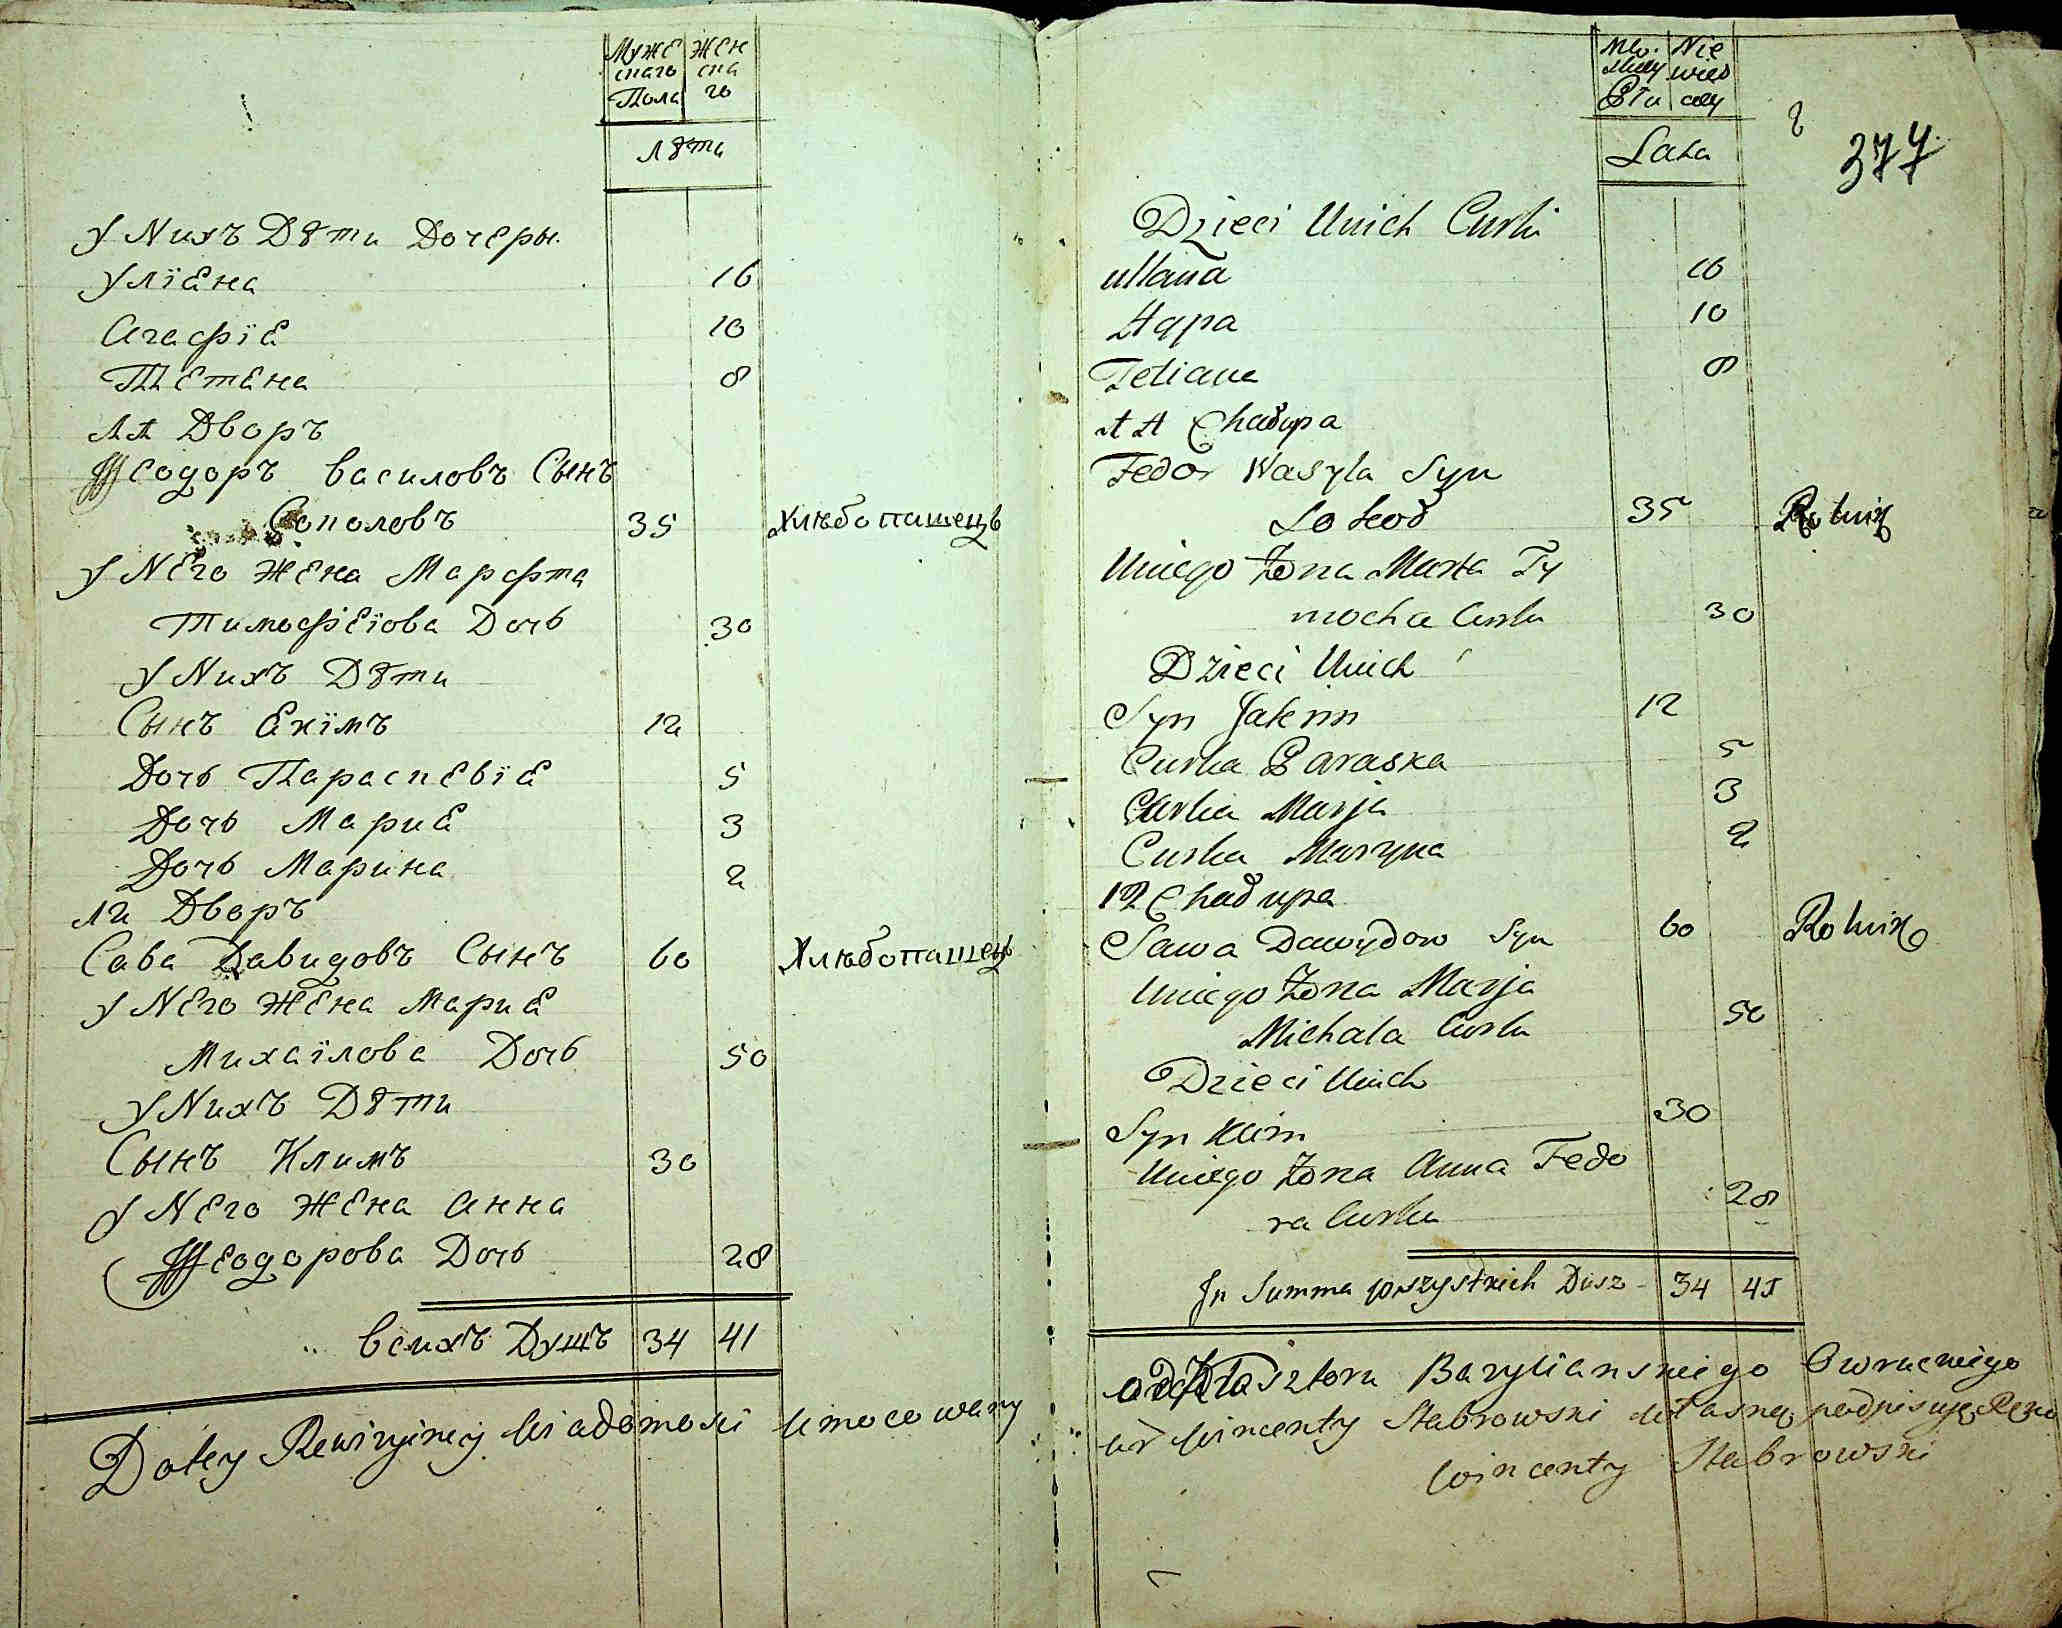 Муже Жен
скаго ска
Пола го
Лѣта
У Nихъ Дѣти Дочеры.
Улїена 16
Агафїе 10
Тетена 8
11 Дворъ
Ѳеодоръ Василовъ Сынъ
Соколовъ 35 Хлѣбопашецъ
У Nего Жена Марфта
Тимофїеїова Дочь 30
У Nихъ Дѣти
Сынъ Екїмъ 12
Дочь Параскевїе 5
Дочь Марие 3
Дочь Марина 2
12 Дворъ
Сава Давидовъ Сынъ 60 Хлѣбопашецъ
У Nего Жена Марие
Михаїлова Дочь 50
У Nихъ Дѣти
Сынъ Климъ 30
У Nего Жена Анна
Ѳеодорова Дочь 28
Всихъ Душъ 34 41
Do tey Rewizyiney Wiadomosci Umocowany
Nie
wies
Płci
Lata
377
Dzieci Unich Curki
Ullana 16
Hapa 10
Tetiana 8
11 Chałupa
Fedor Wasyla Syn
Sokoł 35 Rolnik
Uniego Żona Marta Ty
mocha Curka 30
Dzieci Unich
Syn Jakim 12
Curka Paraska 5
Curka Marja 3
Curka Maryna 2
12 Chałupa
Sawa Dawydow Syn 60 Rolnik
Uniego Żona Marja
Michała Curka 50
Dzieci Unich
Syn Klim 30
Uniego Żona Anna Fedo
ra Curka 28
Jn Summa wszystkich Dusz 34 41
od Klasztoru Bazylianskiego Owruckiego
Wincenty Stabrowski własną podpisuję Ręką
Wincenty Stabrowski